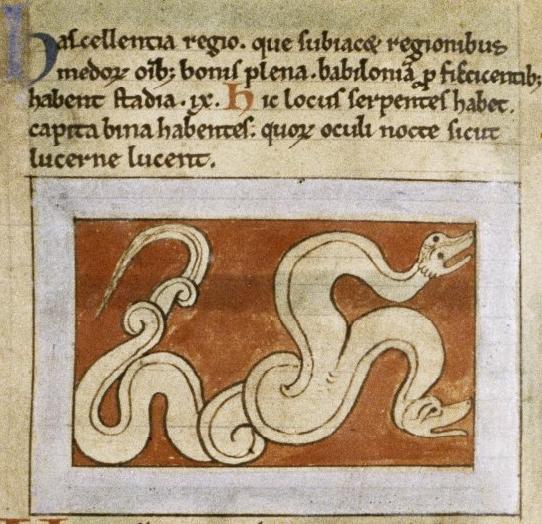 hascellentia regio. que subiacet regionibus
medorꝝ oib; bonis plena. babiloniā ꝑ
habent stadia .ix. Hic locus serpentes habet.
capita bina habentes. quorꝝ oculi nocte sicut
lucerne lucent.